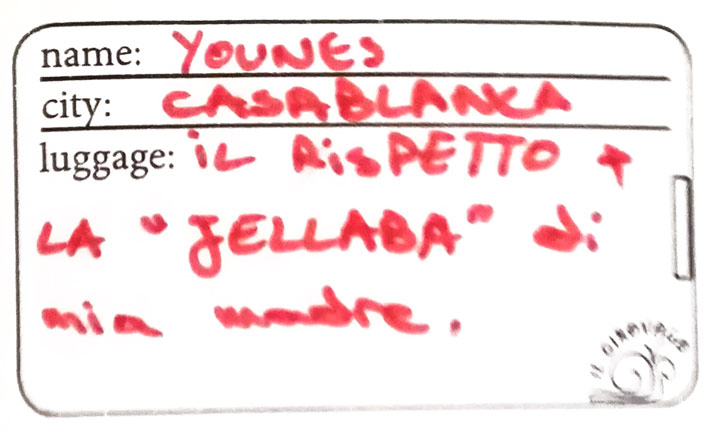 name: YOUNES
city: CASABLANCA
luggage: iL RisPETTO +
LA "JELLABA" di
mia madre.